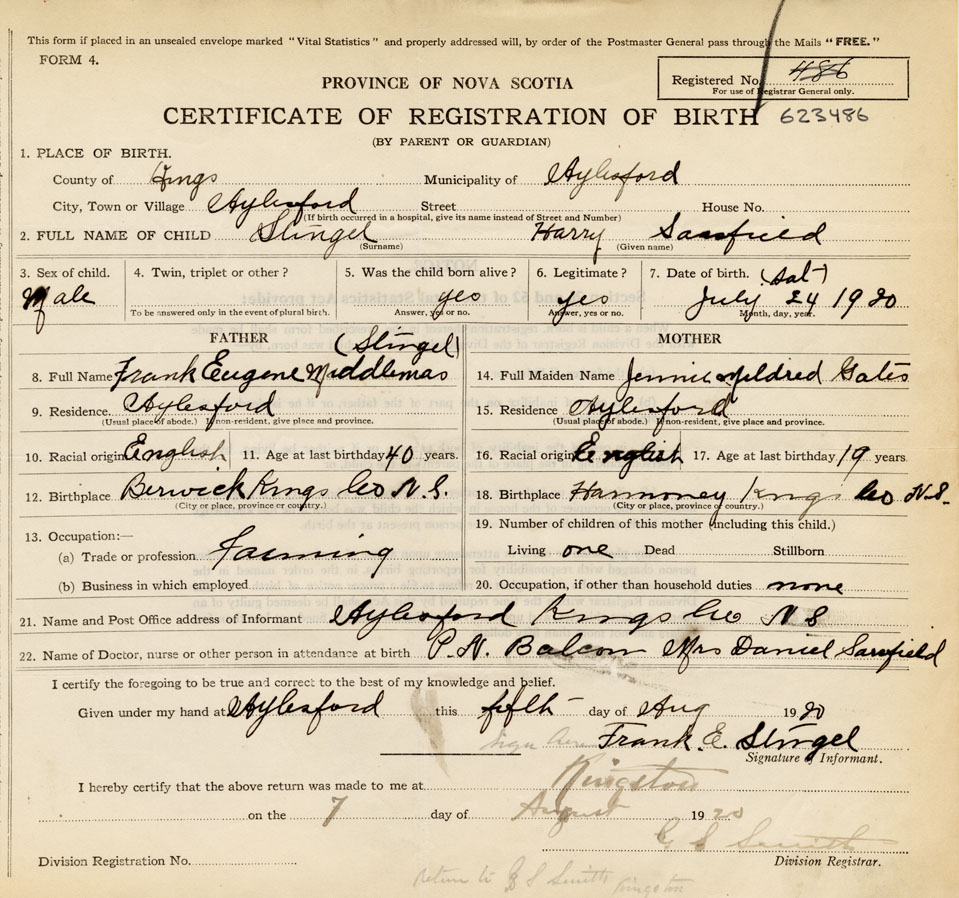 This form if placed in an unsealed envelope marked "Vital Statistics" and properly addressed will, by order of the Postmaster General pass through the Mails "FREE."
FORM 4.
Registered No. 486
For use of Registrar General only.
PROVINCE OF NOVA SCOTIA
CERTIFICATE OF REGISTRATION OF BIRTH 623486
(BY PARENT OR GUARDIAN)
1. PLACE OF BIRTH.
County of Kings Municipality of Aylesford
City, Town or Village Aylesford Street House No.
(If birth occurred in a hospital, give its name instead of Street and Number)
2. FULL NAME OF CHILD Slingel Harry Sarsfield
(Surname) (Given name)
3. Sex of child. 4. Twin, triplet or other? 5. Was the child born alive? 6. Legitimate? 7. Date of birth. (Sat)
Male yes yes July 24 1920
To be answered only in the event of plural birth. Answer, yes or no. Answer, yes or no. Month, day, year.
FATHER (Slingel) MOTHER
8. Full Name Frank Eugene Middlemas 14. Full Maiden Name Jennie Mildred Gates
9. Residence. Aylesford 15. Residence Aylesford
(Usual place of abode.) If non-resident, give place and province. (Usual place of abode.) If non-resident, give place and province.
10. Racial origin English 11. Age at last birthday 40 years. 16. Racial origin English 17. Age at last birthday 19 years.
12. Birthplace Berwick Kings Co N.S. 18. Birthplace Harmoney Kings Co N.S.
(City or place, province or country.) (City or place, province or country.)
13. Occupation:— 19. Number of children of this mother (including this child.)
(a) Trade or profession farming Living one Dead Stillborn
(b) Business in which employed 20. Occupation, if other than household duties none
21. Name and Post Office address of Informant Aylesford Kings Co N S
22. Name of Doctor, nurse or other person in attendance at birth P. N. Balcom Mrs Daniel Sarsfield
I certify the foregoing to be true and correct to the best of my knowledge and belief.
Given under my hand at Aylesford this fifth day of Aug 1920
Frank. E. Slingel
Signature of Informant.
I hereby certify that the above return was made to me at Kingston
on the 7 day of August 1920
G S Smith
Division Registration No. Division Registrar.
return to G S Smith Kingston